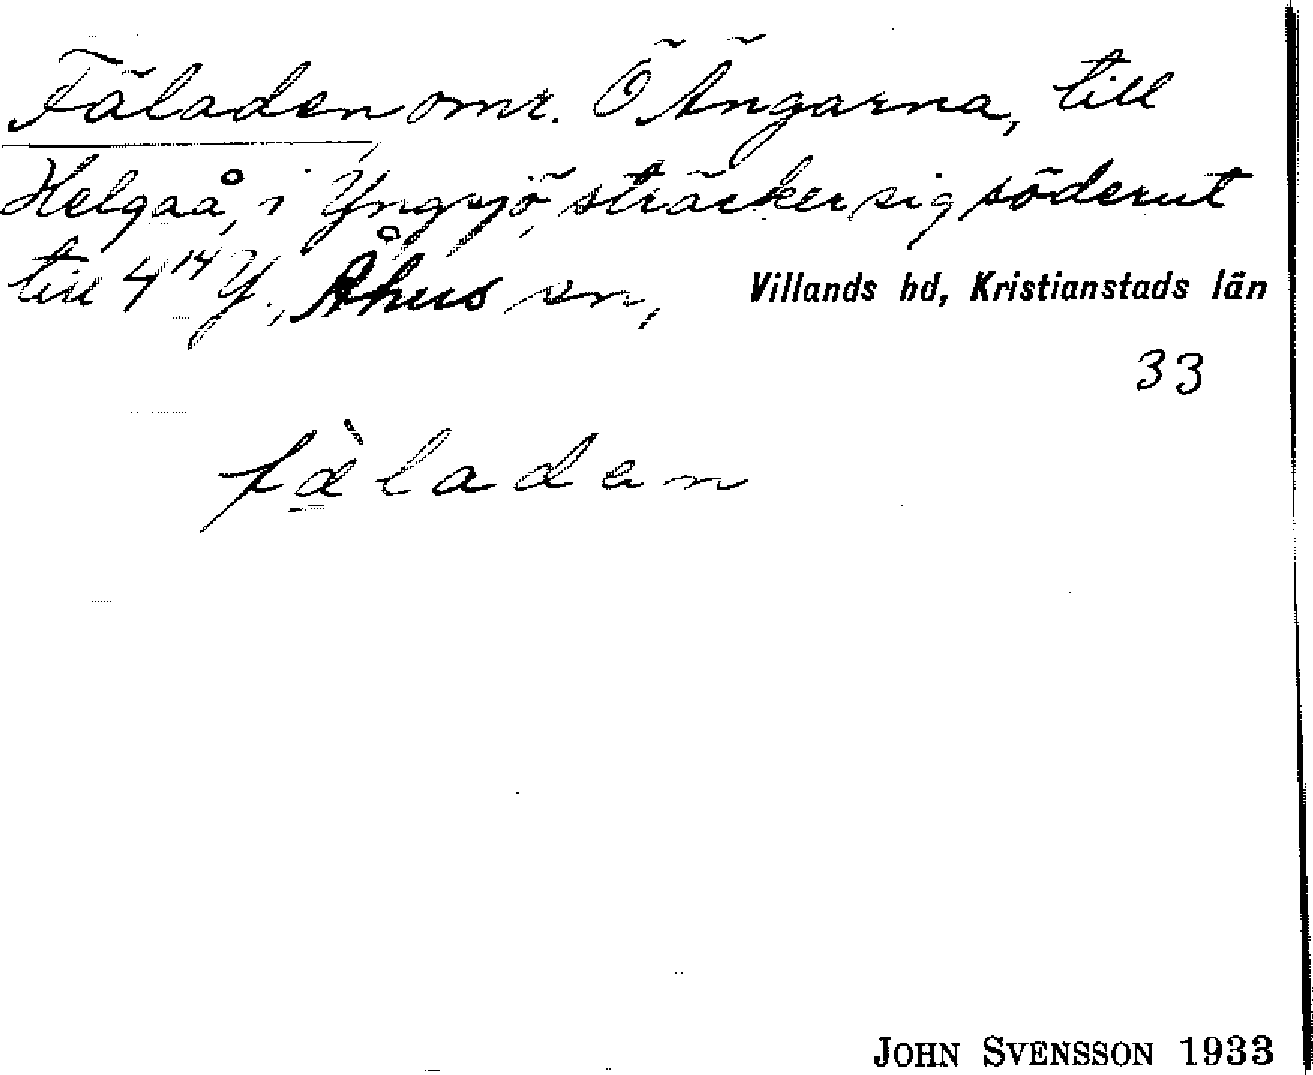 Fäladen omr. Ö Ängarna, till
Helgaå, i Yngsjö, sträcker sig söderut
till 4¹⁴ Y., Åhus sn, Villands hd, Kristianstads län
33
fàladen
JOHN SVENSSON 1933